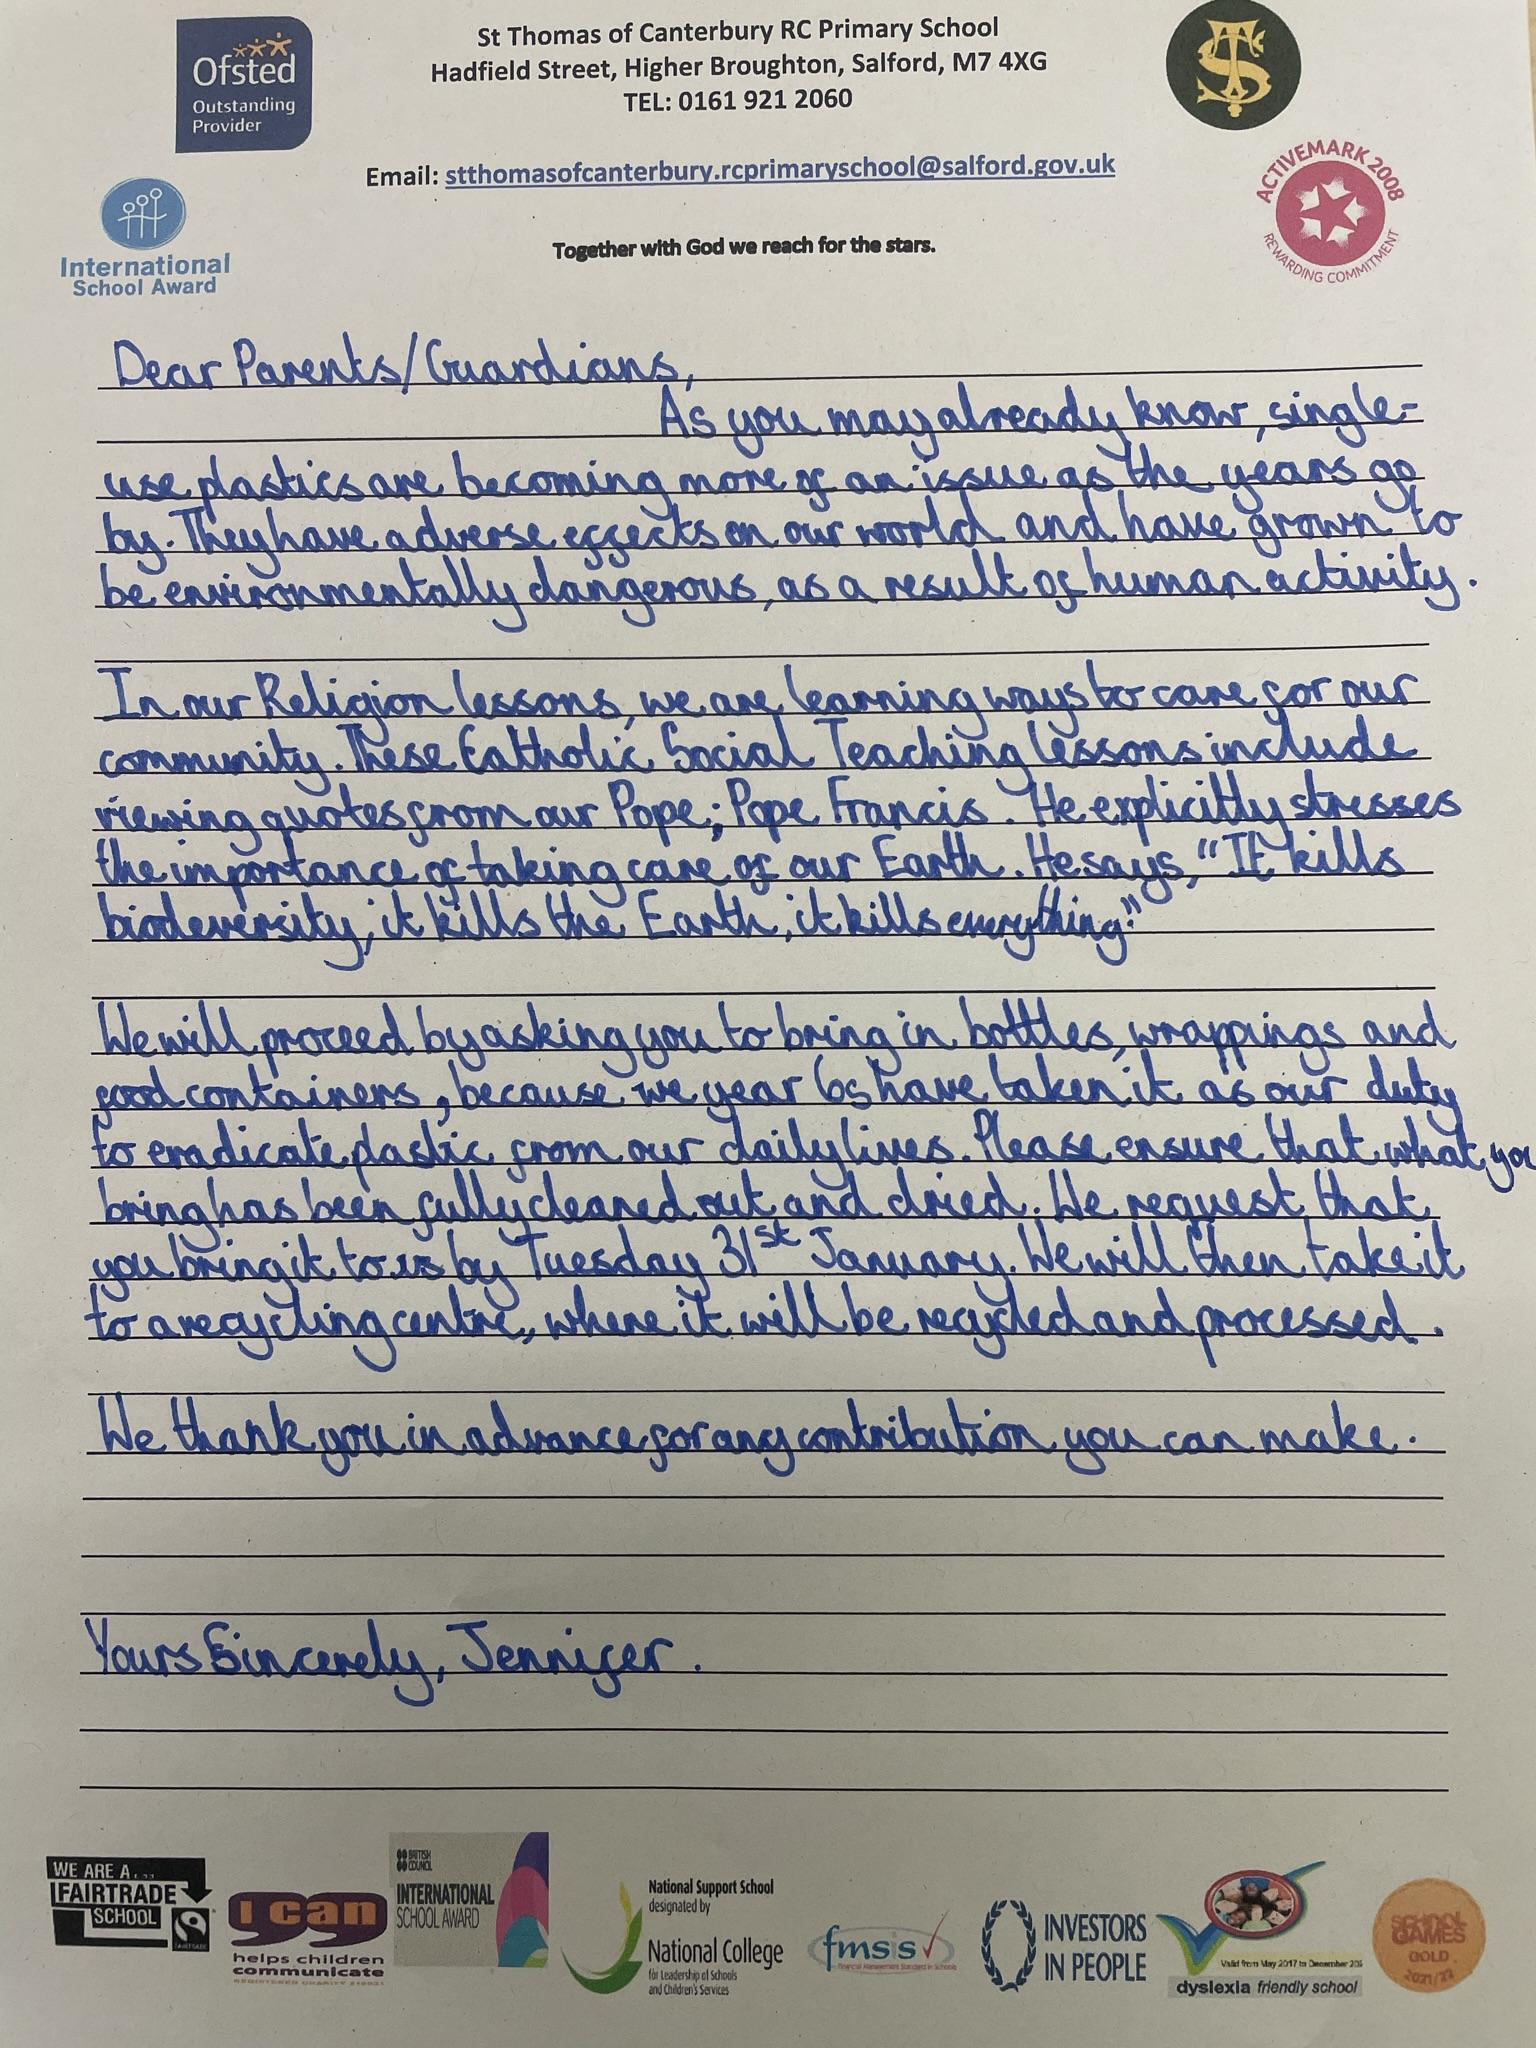 Ofsted
Outstanding
Provider
St Thomas of Canterbury RC Primary School
Hadfield Street, Higher Broughton, Salford, M7 4XG
TEL: 0161 921 2060
Email: stthomasofcanterbury.rcprimaryschool@salford.gov.uk
Together with God we reach for the stars.
International
School Award
ACTIVEMARK 2008
REWARDING COMMITMENT
Dear Parents/Guardians,
As you may already know, single-
use plastics are becoming more of an issue as the years go
by. They have adverse effects on our world and have grown to
be environmentally dangerous, as a result of human activity.
In our Religion lessons, we are learning ways to care for our
community. These Catholic Social Teaching lessons include
viewing quotes from our Pope; Pope Francis. He explicitly stresses
the importance of taking care of our Earth. He says, "It kills
biodeversity, it kills the Earth, it kills everything."
We will proceed by asking you to bring in bottles, wrappings and
food containers, because we year 6s have taken it as our duty
to eradicate plastic from our daily lives. Please ensure that what you
bring has been fully cleaned out and dried. We request that
you bring it to us by Tuesday 31st January. We will then take it
to a recycling centre, where it will be recycled and processed.
We thank you in advance for any contribution you can make.
Yours Sincerely, Jennifer.
WE ARE A...
FAIRTRADE
SCHOOL
FAIRTRADE
I can
helps children
communicate
BRITISH
COUNCIL
INTERNATIONAL
SCHOOL AWARD
National Support School
designated by
National College
for Leadership of Schools
and Children's Services
fmsis
Financial Management Standard in Schools
INVESTORS
IN PEOPLE
Valid from May 2017 to December 20
dyslexia friendly school
SCHOOL
GAMES
GOLD
2021/22